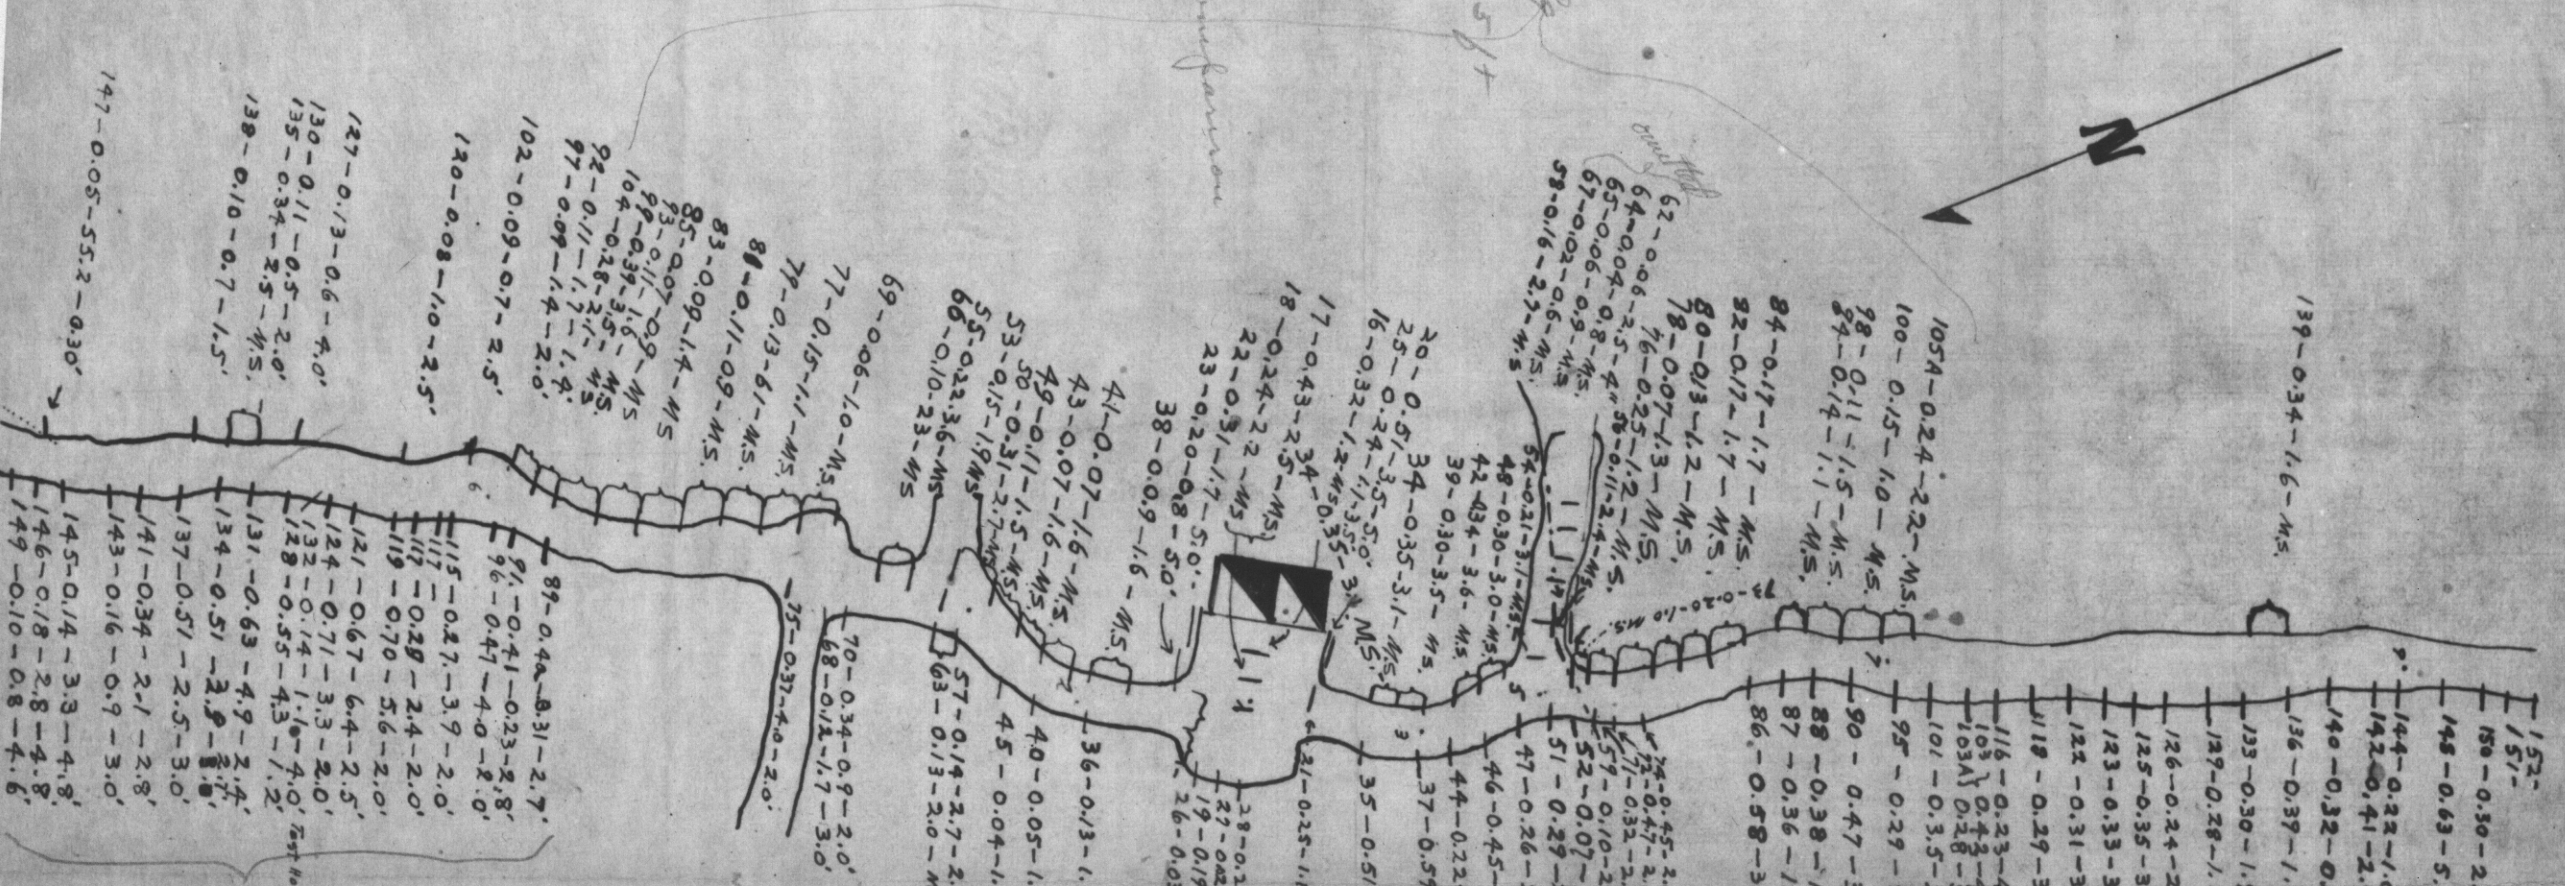 147-0.05-55.2-0.30'
138-0.10-0.7-1.5'
135-0.34-2.5-M.S.
130-0.11-0.5-2.0'
127-0.13-0.6-4.0'
120-0.08-1.0-2.5'
102-0.09-0.7-2.5'
97-0.09-1.4-2.0'
92-0.11-1.7-1.4'
104-0.28-2.1-M.S.
99-0.39-3.5-M.S.
93-0.11-1.6-MS
85-0.07-0.9-MS
83-0.09-1.4-MS
81-0.11-0.9-M.S.
79-0.13-61-M.S.
77-0.15-1.1-M.S.
69-0.06-1.0-M.S.
66-0.10-23-MS
55-0.22-3.6-MS
53-0.15-1.9 MS
50-0.31-2.7-MS
49-0.11-1.5-M.S.
43-0.07-1.6-M.S.
41-0.07-1.6-M.S.
38-0.09-1.6-M.S.
23-0.20-0.8-5.0'
22-0.31-1.7-5.0'
18-0.24-2.2-MS
17-0.43-2.5-MS
34-0.35-3.1 MS.
16-0.32-1.2-MS
25-0.24-1.1-3.5'
20-0.51-3.5-5.0'
34-0.35-3.1-M.S.
39-0.30-3.5-M.S.
42-034-3.6-M.S.
48-0.30-3.0-M.S.
54-0.21-3.1-M.S.
58-0.16-2.7-M.S
67-0.02-0.6-M.S.
65-0.06-0.9-M.S
64-0.04-0.8-M.S.
62-0.06-2.5-4"
56-0.11-2.4-MS
76-0.25-1.2-M.S.
78-0.07-1.3-M.S.
80-0.13-1.2-M.S.
82-0.17-1.7-M.S.
84-0.17-1.7-M.S.
94-0.14-1.1-M.S.
98-0.11-1.5-M.S.
100-0.15-1.0-M.S.
105A-0.24-2.2-M.S.
139-0.34-1.6-M.S.
73-0.20-1.0 M.S.
N
omitted
149-0.10-0.8-4.6'
146-0.18-2.8-4.8'
145-0.14-3.3-4.8'
143-0.16-0.9-3.0'
141-0.34-2.1-2.8'
137-0.51-2.5-3.0'
134-0.51
131-0.63-4.9-2.4'
128-0.55-4.3-1.2'
132-0.14-1.1-4.0' Test Ho
124-0.71-3.3-2.0'
121-0.67-6.4-2.5'
119-0.70-5.6-2.0'
117-0.29-2.4-2.0'
117-
115-0.27-3.9-2.0'
96-0.47-4.0-2.0'
91-0.41-0.23-2.8'
75-0.37-4.0-2.0'
68-0.12-1.7-3.0'
70-0.34-0.9-2.0'
63-0.13-2.0-M
57-0.14-2.7-2.
45-0.04-1.
40-0.05-1.
36-0.13-1.
26-0.03
19-0.19
27-0.02
28-0.2
21-0.25-1.1
35-0.51
37-0.59
44-0.22
46-0.45-
47-0.26-
51-0.29-
52-0.07-
59-0.10-2
71-0.32-2.
72-0.47-2.
74-0.45-2.
86-0.58-3
87-0.36-1
88-0.38-1
90-0.47-
95-0.29-
101-0.35-
103A} 0.28-
103} 0.42-
116-0.23-4
118-0.29-3
122-0.31-3
123-0.33-3
125-0.35-3
126-0.24-2
129-0.28-1.
133-0.30-1.
136-0.39-1.
140-0.32-0.
142-0.41-2.
144-0.22-1.
148-0.63-5.
150-0.50-2
151-
152-